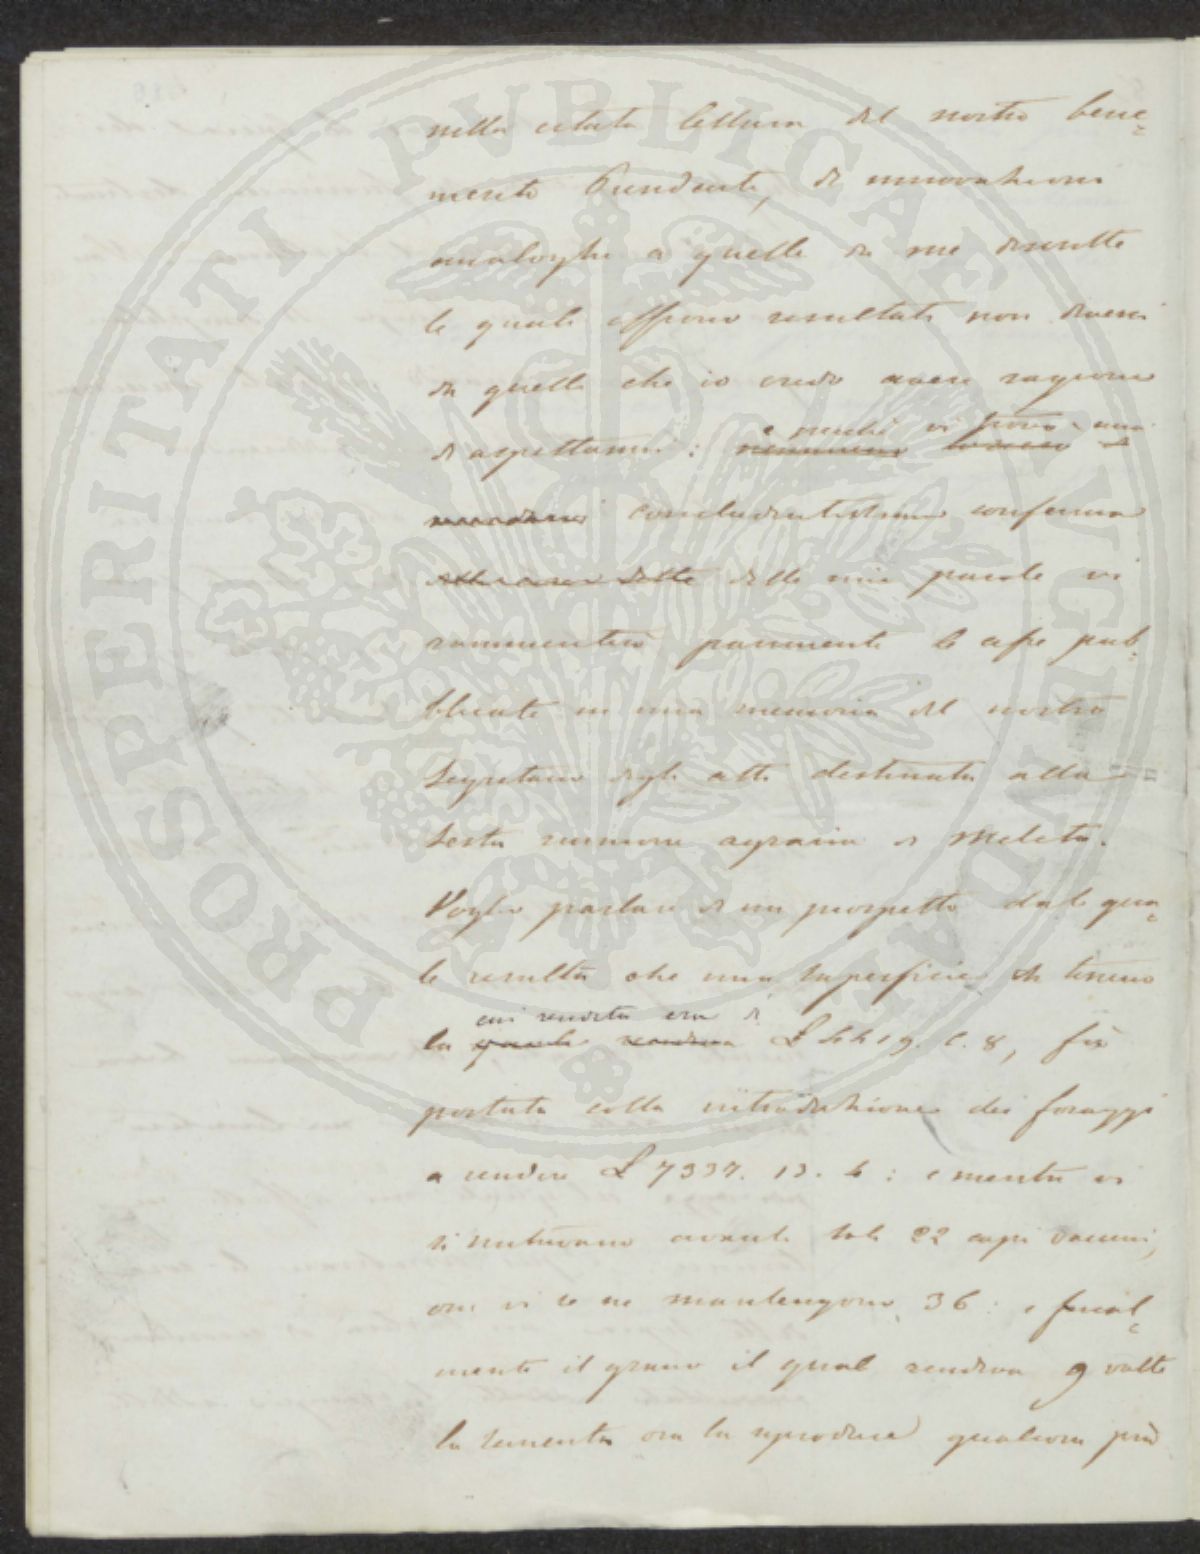 PROSPERITATI PVBLICAE AVGENDAE
nella citata lettura del nostro bene=
merito Presidente, di innovazioni
analoghe a quelle da me descritte
le quali offrono resultati non diversi
da quelli che io credo avere ragione
di aspettarmi:
e perchè vi trovo una
concludentissima conferma
delle mie parole vi
rammenterò parimente le cifre pub=
blicate in una memoria del nostro
Segretario degli atti destinata alla
sesta riunione agraria di Meleto.
Voglio parlare di un prospetto dal qua=
le resulta che una superficie di terreno
cui rendita era di
la quale rendeva £ 8, fù
portata colla introduzione dei foraggi
a rendere £ 7337. 13. 4: e mentre vi
si nutrivano avanti soli 22 capi vaccini,
ora vi se ne mantengono 36: e final=
mente il grano il qual rendeva 9 volte
la sementa ora la riproduce qualcosa più